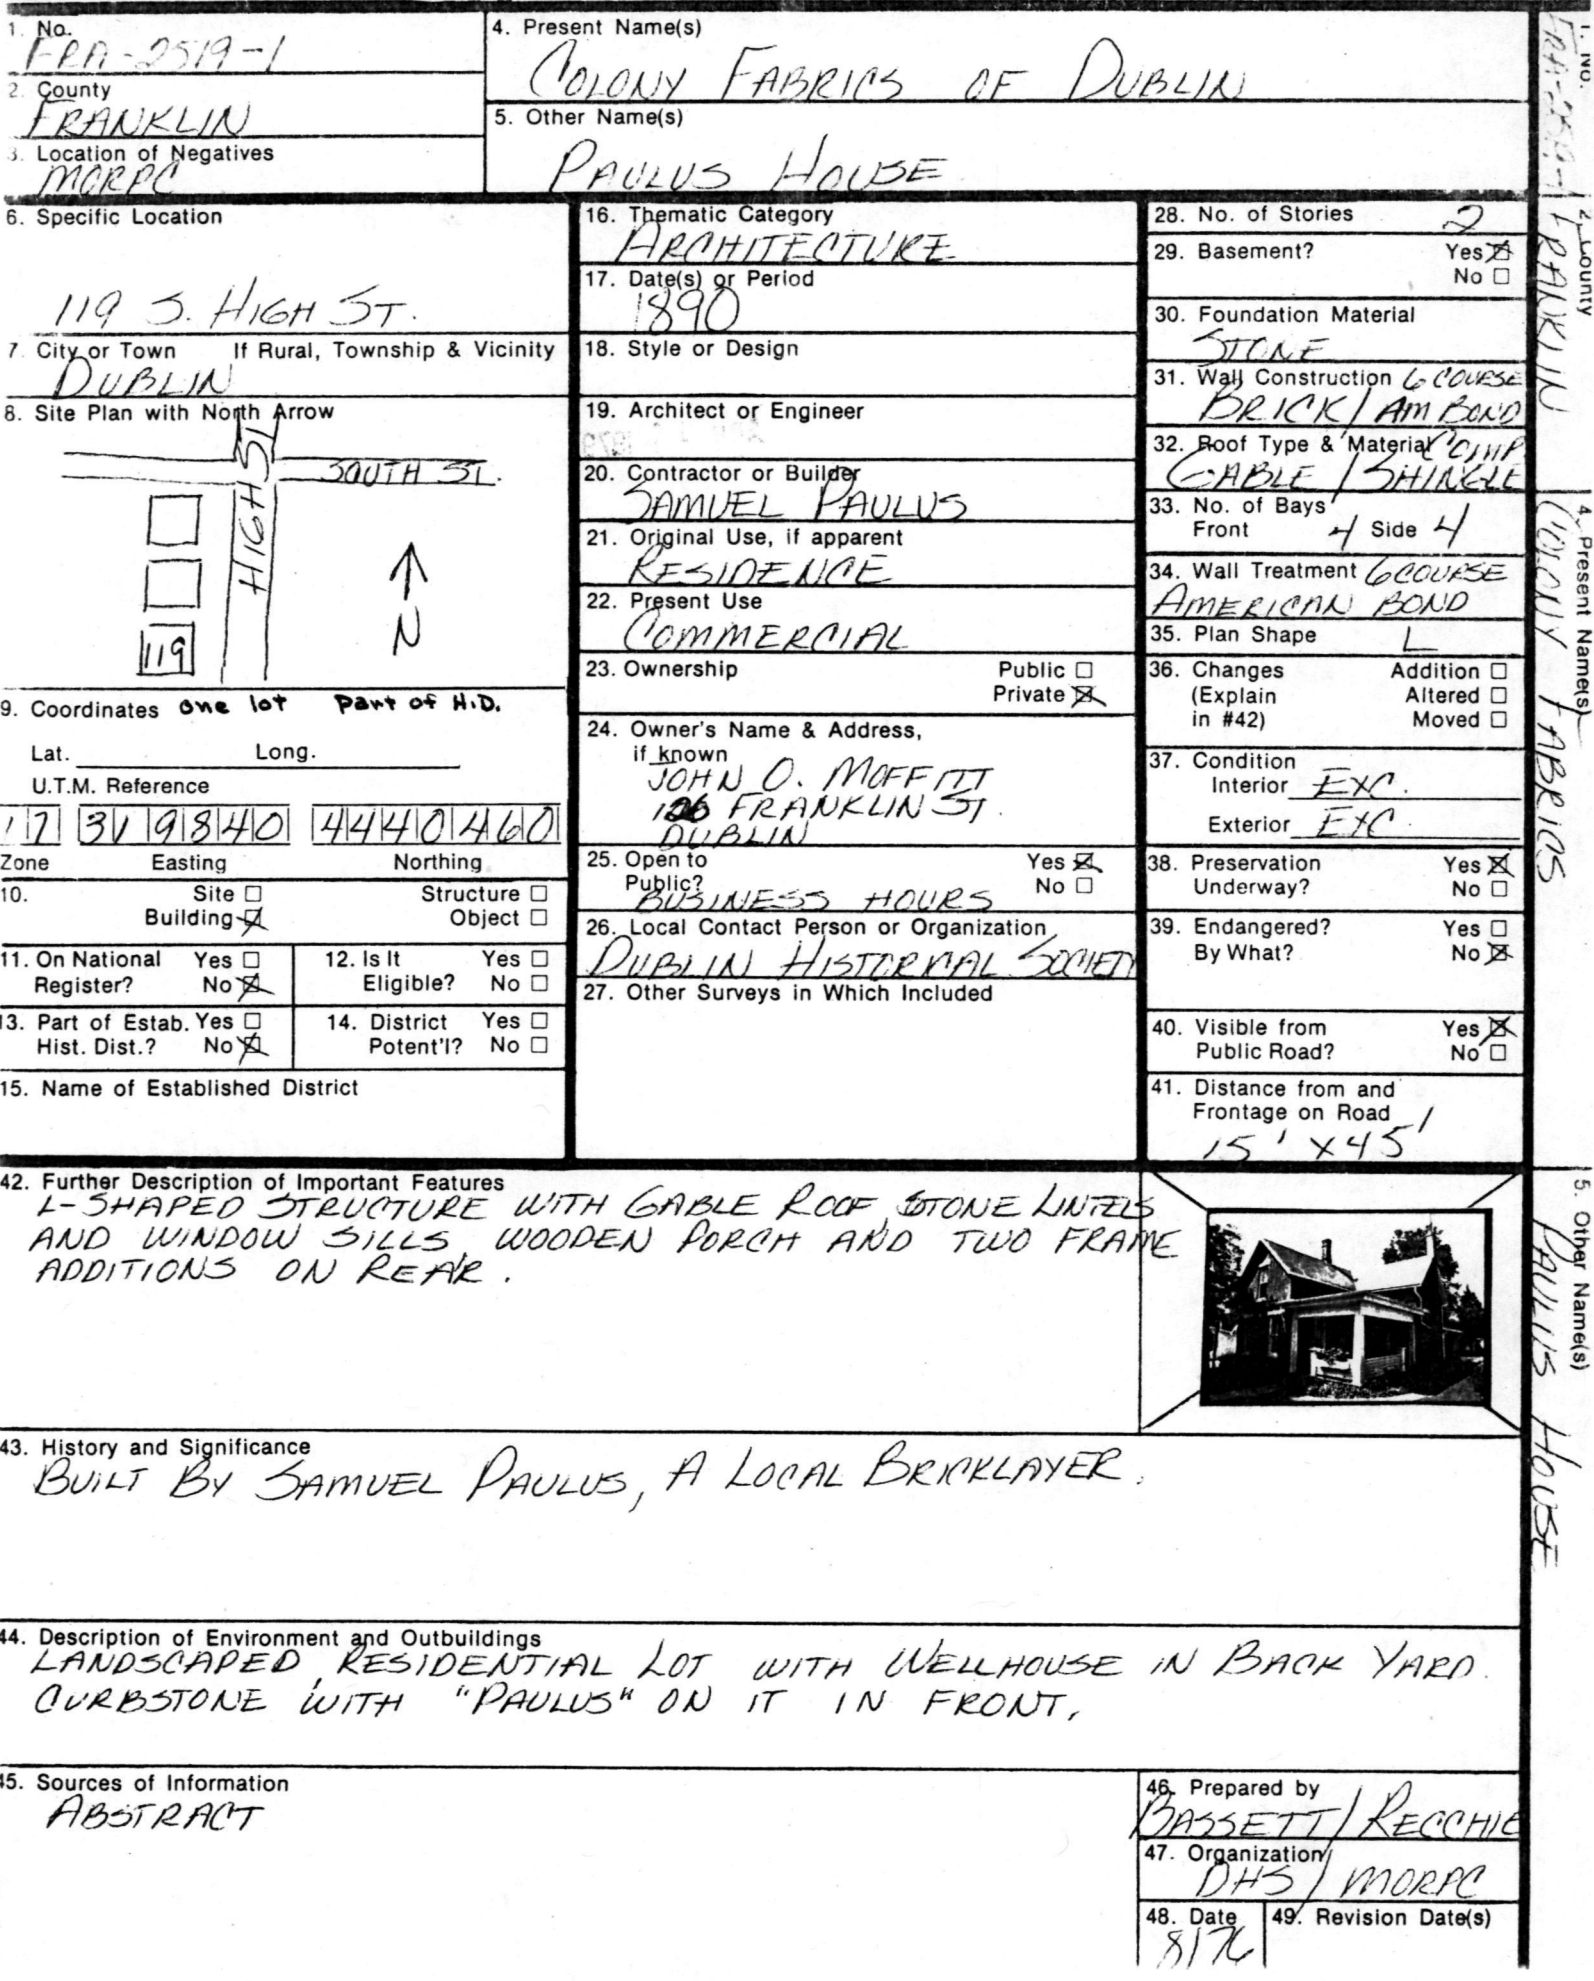 1. No.
FRA-2519-1
2. County
FRANKLIN
3. Location of Negatives
MORPC
4. Present Name(s)
COLONY FABRICS OF DUBLIN
5. Other Name(s)
PAULUS HOUSE
6. Specific Location
119 S. HIGH ST.
7. City or Town If Rural, Township & Vicinity
DUBLIN
8. Site Plan with North Arrow
HIGH ST
SOUTH ST.
N
119
9. Coordinates one lot part of H.D.
Lat. Long.
U.T.M. Reference
17 319840 4440460
Zone Easting Northing
10. Site Structure
Building Object
11. On National Register? Yes No
12. Is It Eligible? Yes No
13. Part of Estab. Hist. Dist.? Yes No
14. District Potent'l? Yes No
15. Name of Established District
16. Thematic Category
ARCHITECTURE
17. Date(s) or Period
1890
18. Style or Design
19. Architect or Engineer
20. Contractor or Builder
SAMUEL PAULUS
21. Original Use, if apparent
RESIDENCE
22. Present Use
COMMERCIAL
23. Ownership Public
Private
24. Owner's Name & Address,
if known
JOHN O. MOFFITT
126 FRANKLIN ST.
DUBLIN
25. Open to Yes
Public? No
BUSINESS HOURS
26. Local Contact Person or Organization
DUBLIN HISTORICAL SOCIETY
27. Other Surveys in Which Included
28. No. of Stories 2
29. Basement? Yes
No
30. Foundation Material
STONE
31. Wall Construction 6 COURSE
BRICK / AM BOND
32. Roof Type & Material COMP
GABLE / SHINGLE
33. No. of Bays
Front 4 Side 4
34. Wall Treatment 6 COURSE
AMERICAN BOND
35. Plan Shape L
36. Changes Addition
(Explain Altered
in #42) Moved
37. Condition
Interior EXC.
Exterior EXC.
38. Preservation Yes
Underway? No
39. Endangered? Yes
By What? No
40. Visible from Yes
Public Road? No
41. Distance from and
Frontage on Road
15' X 45'
42. Further Description of Important Features
L-SHAPED STRUCTURE WITH GABLE ROOF, STONE LINTELS
AND WINDOW SILLS, WOODEN PORCH AND TWO FRAME
ADDITIONS ON REAR.
43. History and Significance
BUILT BY SAMUEL PAULUS, A LOCAL BRICKLAYER.
44. Description of Environment and Outbuildings
LANDSCAPED, RESIDENTIAL LOT WITH WELLHOUSE IN BACK YARD.
CURBSTONE WITH "PAULUS" ON IT IN FRONT.
45. Sources of Information
ABSTRACT
46. Prepared by
BASSETT / RECCHIE
47. Organization
DHS / MORPC
48. Date
8/76
49. Revision Date(s)
1. No.
FRA-2519-1
2. County
FRANKLIN
4. Present Name(s)
COLONY FABRICS
5. Other Name(s)
PAULUS HOUSE